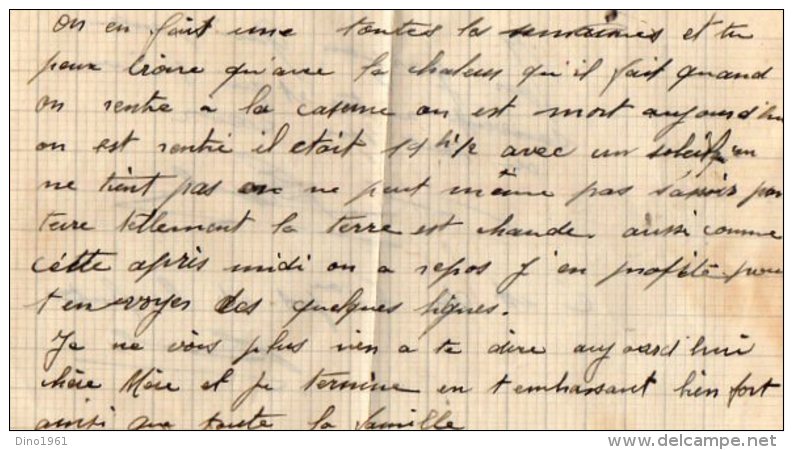 on en fait une toutes les semaines et tu
peux croire qu'avec la chaleur qu'il fait quand
on rentre a la caserne on est mort aujourd'hui
on est rentré il etait 1 h 1/2 avec un soleil qu'on
ne tient pas on ne peut même pas s'assoir par
terre tellement la terre est chaude. aussi comme
cette après midi on a repos J'en profite pour
t'envoyer des quelques lignes.
Je ne vois plus rien a te dire aujourd'hui
chère Mère et je termine en t'embrassant bien fort
ainsi que toute la famille
Dino1961
delcampe.net